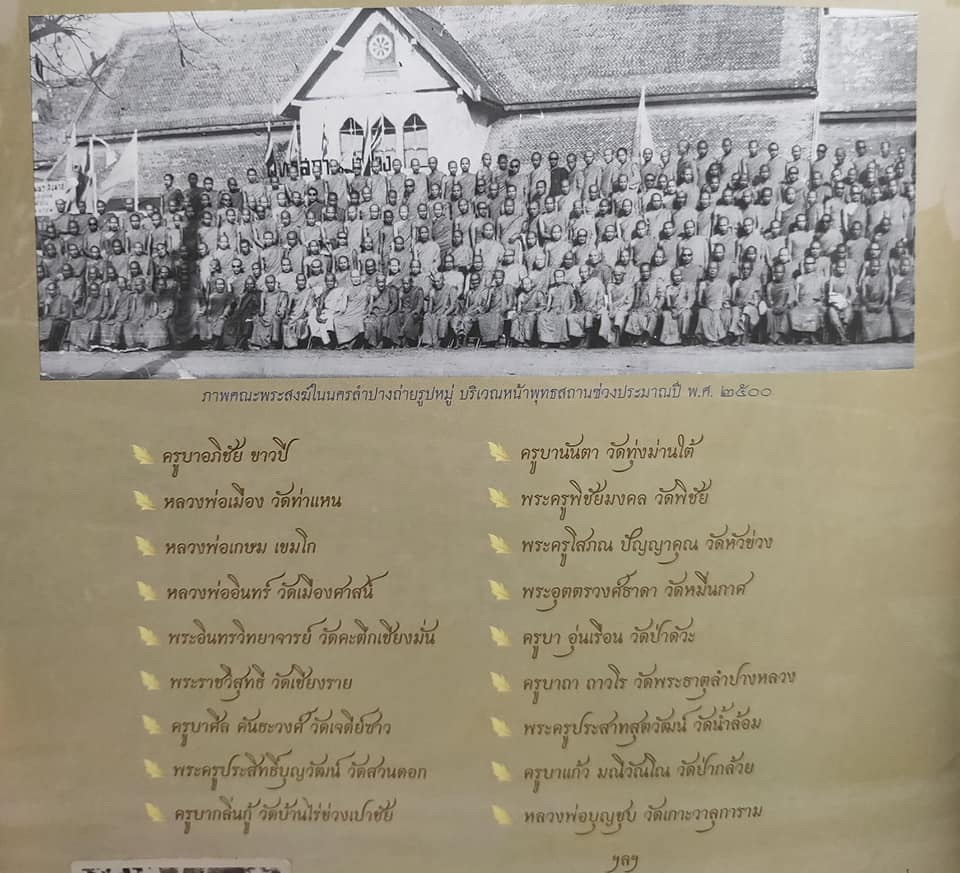 ภาพคณะพระสงฆ์ในนครลำปางถ่ายรูปหมู่ บริเวณหน้าพุทธสถานช่วงประมาณปี พ.ศ. ๒๕๐๐
ครูบาอภิชัย ขาวปี
หลวงพ่อเมือง วัดท่าแหน
หลวงพ่อเกษม เขมโก
หลวงพ่ออินทร์ วัดเมืองศาสน์
พระอินทรวิทยาจารย์ วัดคะตึกเชียงมั่น
พระราชวิสุทธิ วัดเชียงราย
ครูบาศีล คันธะวงค์ วัดเจดีย์ซาว
พระครูประสิทธิ์บุญวัฒน์ วัดสวนดอก
ครูบากลิ่นกู้ วัดบ้านไร่ข่วงเปาชัย
ครูบานันตา วัดทุ่งม่านใต้
พระครูพิชัยมงคล วัดพิชัย
พระครูโสภณ ปัญญาคุณ วัดหัวข่วง
พระอุตตรวงศ์ธาดา วัดหมื่นกาศ
ครูบา อุ่นเรือน วัดป่าดัวะ
ครูบาถา ถาวโร วัดพระธาตุลำปางหลวง
พระครูประสาทสุตวัฒน์ วัดน้ำล้อม
ครูบาแก้ว มณีวัณโณ วัดป่ากล้วย
หลวงพ่อบุญชุบ วัดเกาะวาลุการาม
ฯลฯ